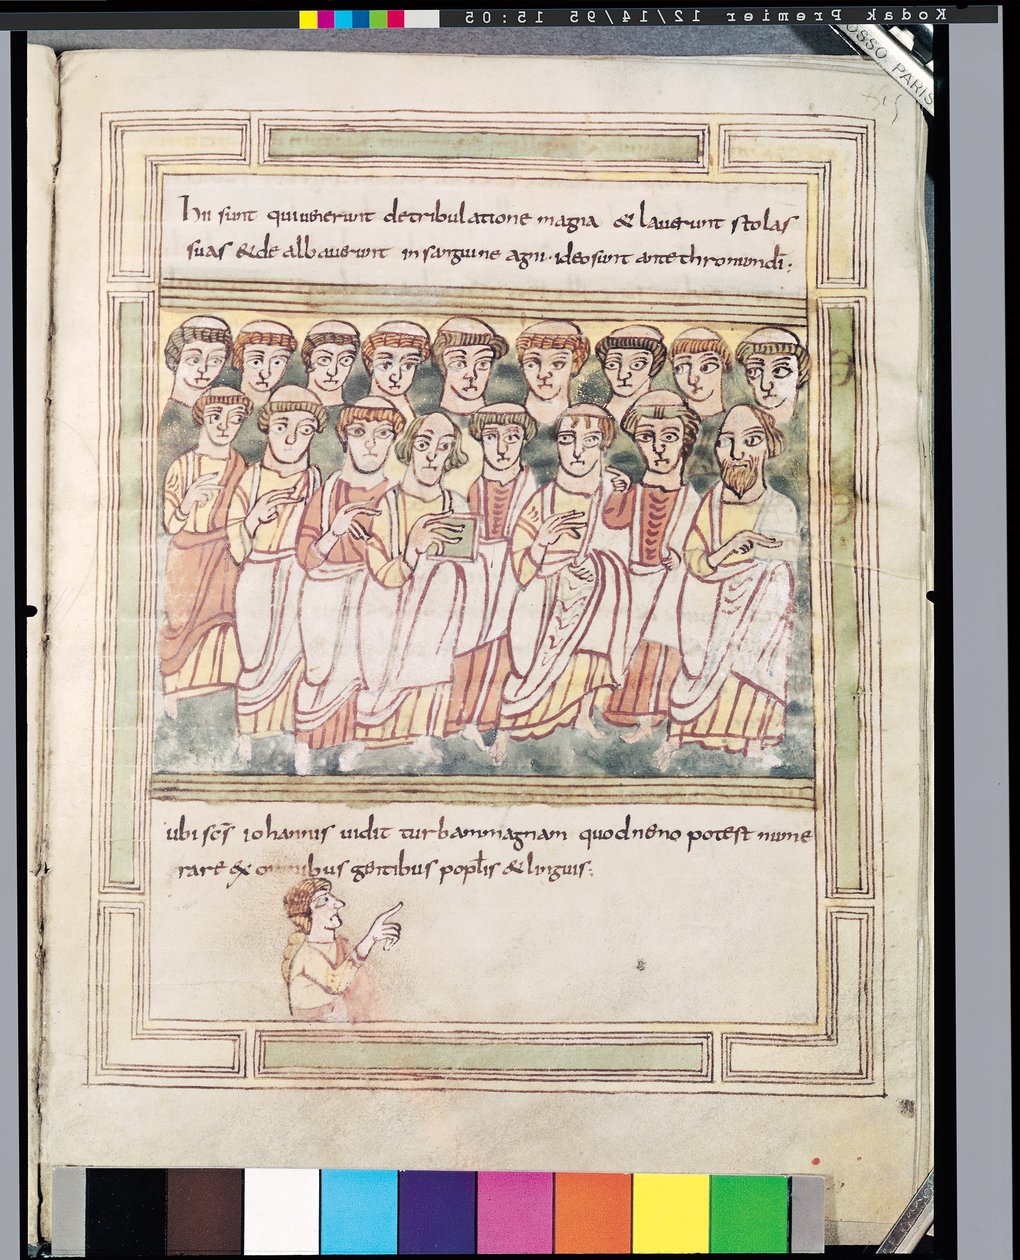 Kodak Premier 12/14/95 15:05
OSSO PARIS
hii sunt qui uenerunt detribulatione magna & lauerunt stolas
suas & de albauerunt in sanguine agni · ideo sunt ante thronum dī;
ubi scs̄ iohannis uidit turbam magnam quod nemo potest nume
rare ex omnibus gentibus popłis & linguis;